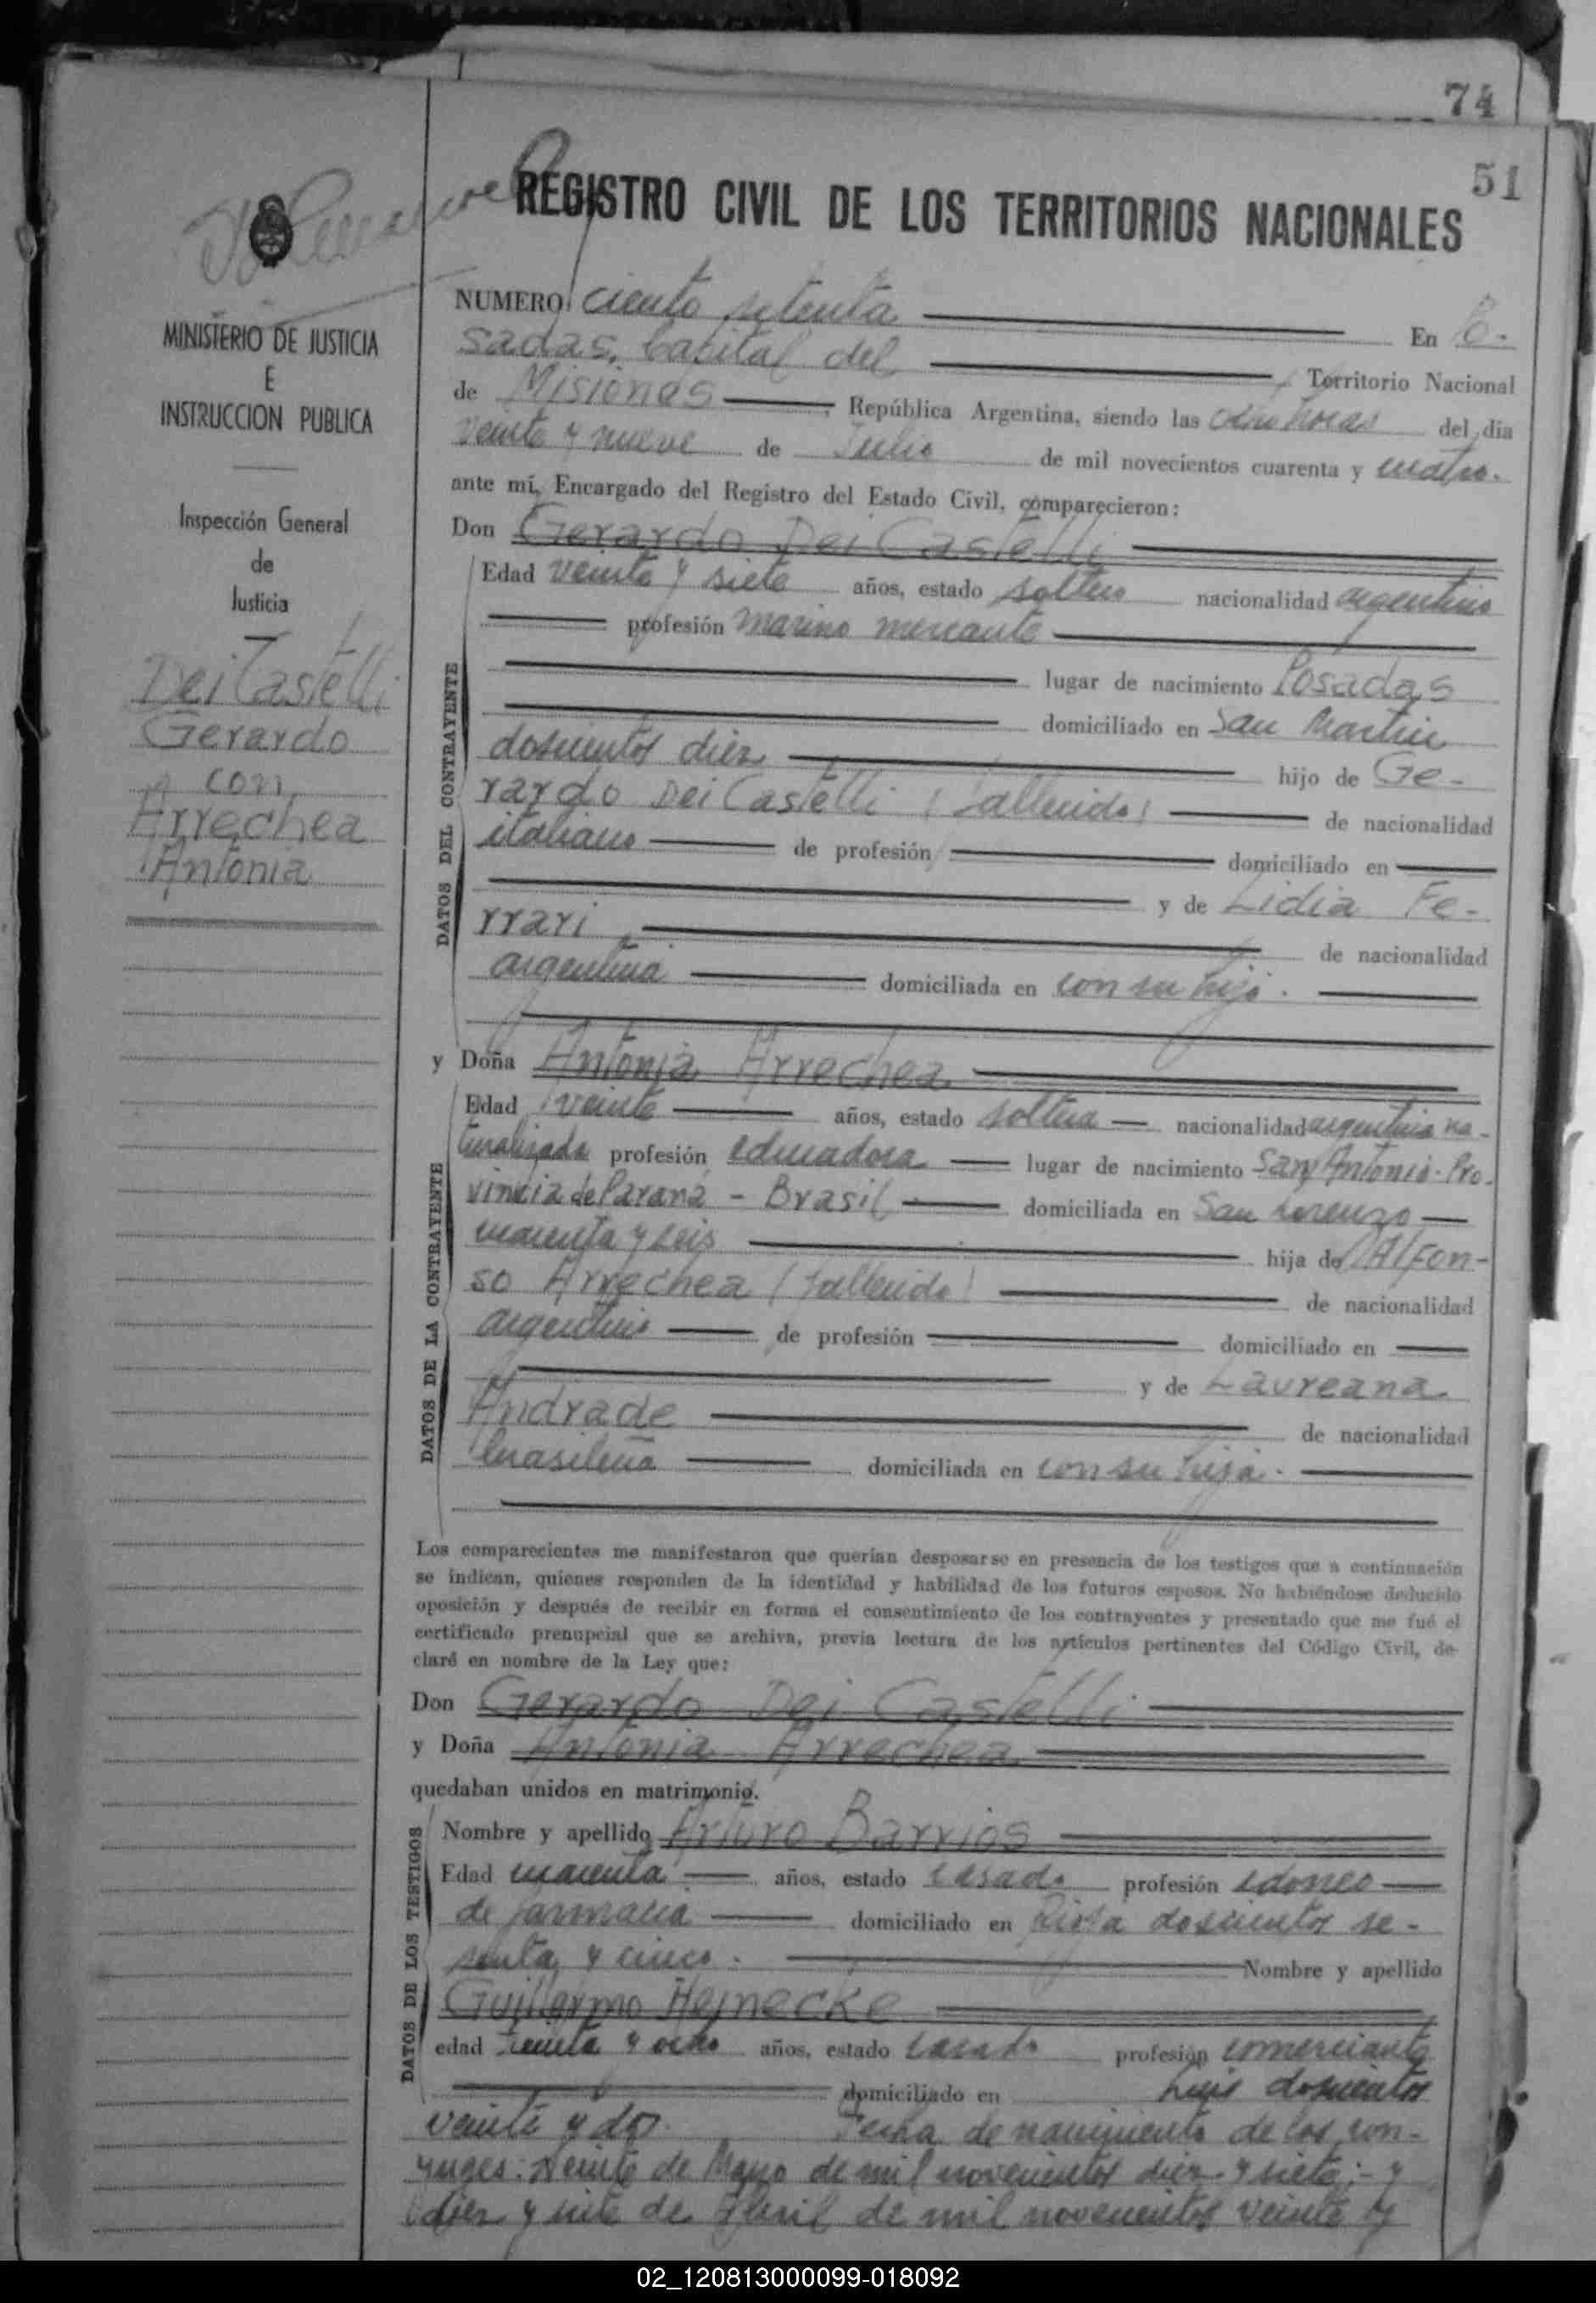 74
51
REGISTRO CIVIL DE LOS TERRITORIOS NACIONALES
MINISTERIO DE JUSTICIA
E
INSTRUCCION PUBLICA
Inspección General
de
Justicia
Dei Castelli
Gerardo
con
Arrechea
Antonia
NUMERO ciento setenta En Po-
sadas, Capital del Territorio Nacional
de Misiones, República Argentina, siendo las ocho horas del día
veinte y nueve de Julio de mil novecientos cuarenta y cuatro.
ante mí, Encargado del Registro del Estado Civil, comparecieron:
Don Gerardo Dei Castelli
DATOS DEL CONTRAYENTE
Edad veinte y siete años, estado soltero nacionalidad argentino
profesión marino mercante
lugar de nacimiento Posadas
domiciliado en San Martin
doscientos diez hijo de Ge-
rardo Dei Castelli (fallecido) de nacionalidad
italiano de profesión domiciliado en
y de Lidia Fe-
rrari de nacionalidad
argentina domiciliada en con su hijo.
y Doña Antonia Arrechea
DATOS DE LA CONTRAYENTE
Edad veinte años, estado soltera nacionalidad argentina na-
turalizada profesión educadora lugar de nacimiento San Antonio-Pro-
vincia de Paraná - Brasil domiciliada en San Lorenzo
cuarenta y seis hija de Alfon-
so Arrechea (fallecido) de nacionalidad
argentino de profesión domiciliado en
y de Laureana
Andrade de nacionalidad
brasileña domiciliada en con su hija.
Los comparecientes me manifestaron que querían desposarse en presencia de los testigos que a continuación
se indican, quienes responden de la identidad y habilidad de los futuros esposos. No habiéndose deducido
oposición y después de recibir en forma el consentimiento de los contrayentes y presentado que me fué el
certificado prenupcial que se archiva, previa lectura de los artículos pertinentes del Código Civil, de-
claré en nombre de la Ley que:
Don Gerardo Dei Castelli
y Doña Antonia Arrechea
quedaban unidos en matrimonio.
DATOS DE LOS TESTIGOS
Nombre y apellido Arturo Barrios
Edad cuarenta años, estado casado profesión idoneo
de farmacia domiciliado en Rioja doscientos se-
senta y cinco. Nombre y apellido
Guillermo Heinecke
edad treinta y ocho años, estado casado profesión comerciante
domiciliado en Luis doscientos
veinte y dos. Fecha de nacimiento de los con-
yuges: veinte de Mayo de mil novecientos diez y siete;- y
diez y siete de Abril de mil novecientos veinte y
02_120813000099-018092